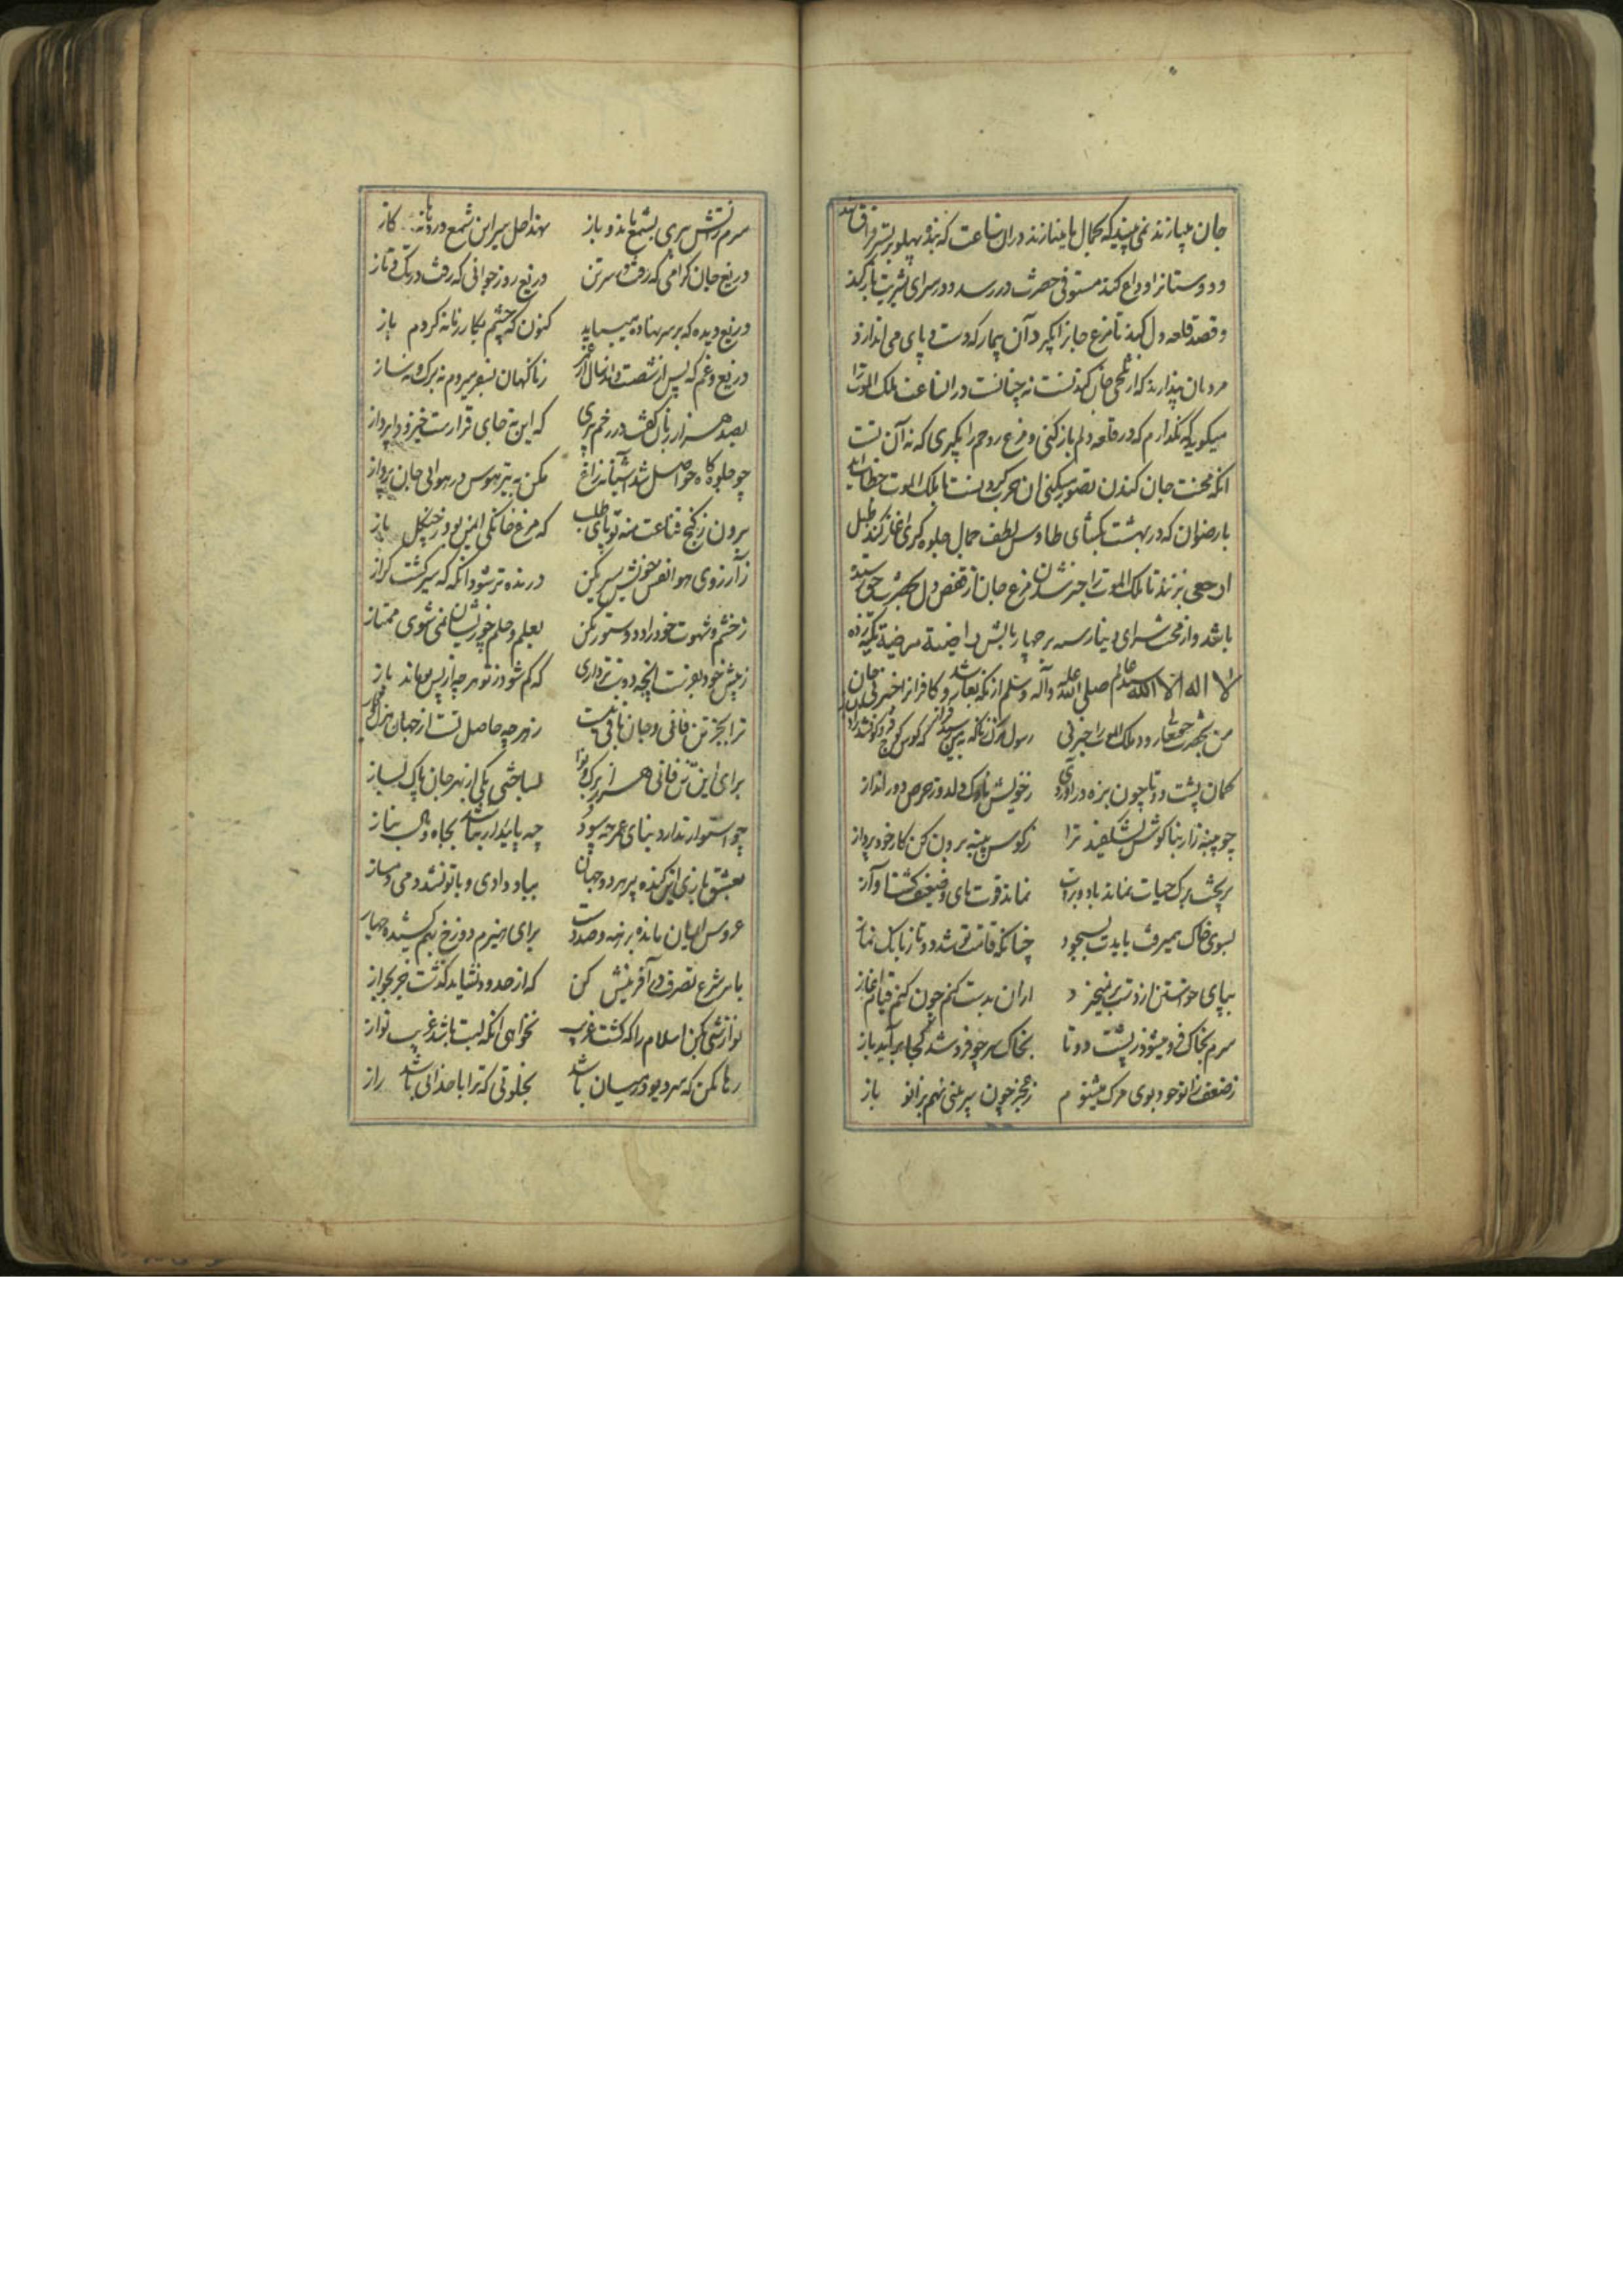 جان میبازند نمی‌بینید که بکمال ما مینازند در ان ساعت که بنده پهلو بر بستر فراق نهد
و دوستانرا وداع کند مستوفی حضرت در رسد و در سرای بشریت باز کند
و قصد قلعه دل کند تا مرغ جانرا بگیرد آن بیمار که دست و پای می اندازد
مردمان پندارند که از تلخی جان کندنست نه چنانست در ان ساعت ملک الموت را
میگوید که نگذارم که در قلعه دلم باز کنی و مرغ روحم را بگیری که نه آن تست
انکه محنت جان کندن تصور میکنی ان حرب کردنست با ملک الموت خطاب اید
با رضوان که در بهشت بگشای طاوس لطف جمال جلوه گری اغاز کند طبل
ارجعی بزنند تا ملک الموت را خبر شدن مرغ جان از قفص دل بحضرت حق رسیده
باشد و از وحشت سرای دنیا رسته بر چهار بالش راضیة مرضیة تکیه زده
لا اله الا الله سید عالم صلی الله علیه وآله وسلم از نکته بعار شد و کافرانرا خبر نی جان
من بحضرت حق تعالی رود ملک الموت را خبر نی   رسول مرگ ز ناگه بمن رسید فراز که کوس کوچ فرو کوفتند
کمان پشت دوتا چون بزه در اوردی   ز خویش ناوک دلدوز حرص دور انداز
چو پنبه زار بناگوش بشکفید ترا   ز گوش پنبه برون کن کار خود پرداز
بریخت برگ حیات نماند باد بروت   نماند قوت پای و ضعیف گشت آواز
بسوی خاک همیرفت بایدت بسجود   چنانکه قامت تو شد دوتا ز بانگ نماز
بپای خواستن از دست بر نمیخیزد   از ان بدست کنم چون کنم قیام اغاز
سرم بخاک فرو میشود ز پشت دوتا   بخاک سر چو فرو شد کجا بر آید باز
ز ضعف زانو خود بوی مرگ میشنوم   ز عجز چون سر بینی نهم بزانو باز
سرم ز آتش پیری بشمع ماند و باز   نهد اجل سر این شمع در دهانه گاز
دریغ جان گرامی که رفت در سر تن   دریغ روز جوانی که رفت در تک و تاز
دریغ دیده که بر هم نهاده میباید   کنون که چشم بکار زمانه کردم باز
دریغ و غم که پس از شصت و اند سال از عمر   ز ناگهان بسفر میروم نه برگ و نه ساز
بصد هزار زبان گفت در رخم پیری   که این نه جای قرارست خیز وا پرداز
چو جلوه گاه حواصل شد آشیانه زاغ   مکن به تیر هوس در هوای جان پرواز
برون ز کنج قناعت منه تو پای طلب   که مرغ خانگی ایمن بود ز چنگل باز
ز آرزوی هوا نفس خویش سیر مکن   درنده تر شود انگه که سیر گشت گراز
ز خشم و شهوت خود را دد و ستور مکن   بعلم و حلم چو زیشان نمی شوی ممتاز
ز پیش خود بفرست انچه دوستر داری   که گم شود ز تو هر چه از پس تو ماند باز
ترا بجز تن فانی و جان باقی نیست   ز هر چه حاصل تست از جهان
برای این تن فانی هزار برگ و نوا   بساختی یکی از بهر جان پاک بساز
چو استوار ندارد بنای عمر چه سود   چه پایدار نباشد بجاه و مال مناز
بعشق بازی این گنده پیر هر دو جهان   بباد دادی و با تو نشد دمی دمساز
عروس ایمان مانده برهنه و صد دست   برای هیزم دوزخ بهم کشیده جهاز
بامر شرع تصرف در آفرینش کن   که از حدود نشاید گذشت جز بجواز
نوازشی بکن اسلام را که گشت غریب   نخواهی انکه لبت باشد غریب نواز
رها مکن که سر دیو در میان باشد   بخلوتی که ترا با خدای باشد راز